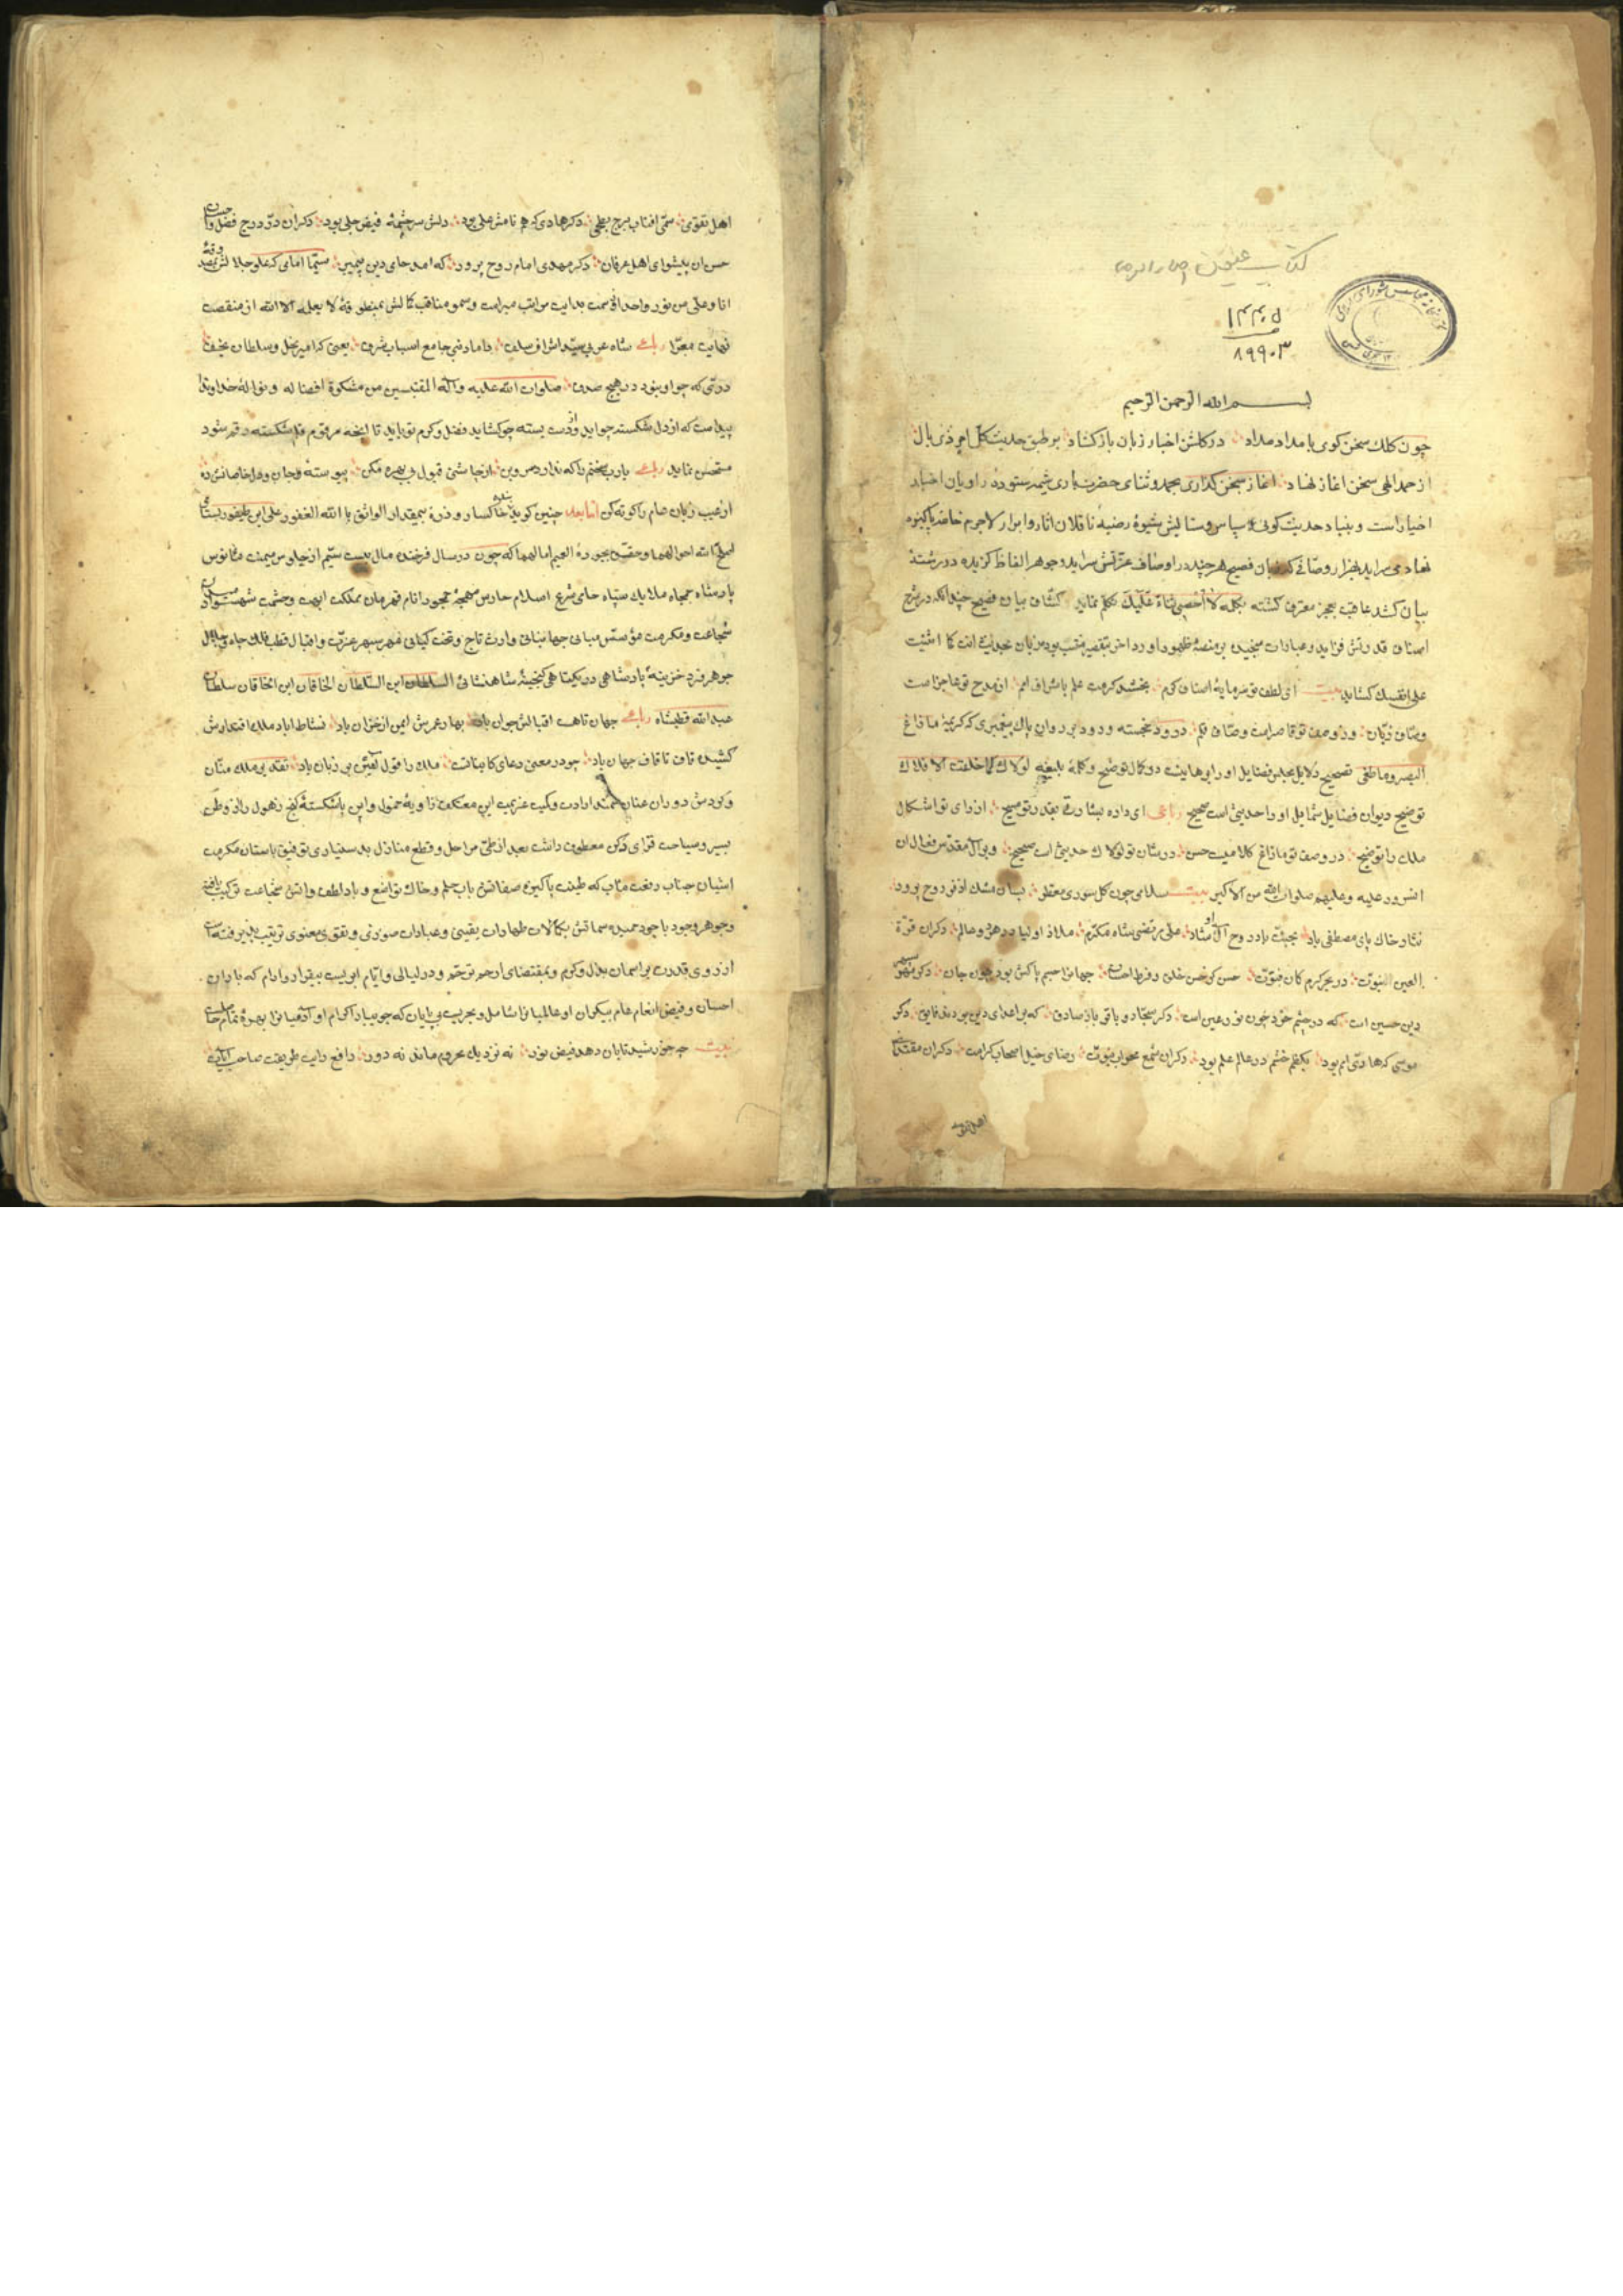 کتاب عیون اخبار الرضا
۱۴۴۰۵
۸۹۹۰۳
بسم الله الرحمن الرحیم
چون کلك سخن کوی با مداد مداد در کلشن اخبار زبان باز کشاد بر طبق حدیث کل امر ذی بال
از حمد الهی سخن اغاز نهاد اغاز سخن کذاری بحمد و ثنای حضرت باری شیمه ستوده راویان اخبار
اخیار است و بنیاد حدیث کوئی سپاس و ستایش شیوهٔ رضیهٔ ناقلان اثار و ابرار لاجرم خامه پاکیزه
نهاد می سراید هزار وصافی که زبان فصیح هر چند در اوصاف عزتش سراید و جوهر الفاظ کزیده در رشتهٔ
بیان کشد عاقبت بعجز معترف کشته بکلمه لا احصی ثناء علیك تکلم نماید کشاف بیان فصیح چندانکه در شرح
اصناف قدرتش فزاید و عبارات سنجیده بر منصهٔ ظهور اورد اخر بزبان انت کما اثنیت
علی نفسك کشاید بیت ای لطف تو سرمایهٔ اصناف کرم بخشد کرمت علم باشراف امم از مدح تو عاجز است
وصاف زبان در وصف تو قاصر است وصاف قلم درود خجسته ورود بر روان پاك پیغمبری که کریمهٔ ما زاغ
البصر و ما طغی تصحیح دلایل فضایل او را برهانیست در کمال توضیح و کلمهٔ بلیغهٔ لولاك لما خلقت الافلاك
توضیح دیوان فضایل شمایل او را حدیثی است صحیح رباعی ای داده بشارت بقدر تو مسیح از رای تو اشکال
ملك را توضیح در وصف تو ما زاغ کلامیست حسن در شان تو لولاك حدیثی است صحیح و بر آل مقدس
علیه و علیهم صلوات الله من الاکبر بیت سلامی چون کل سوری معطر بسان مشك اذفر روح پرور
نثار خاك پای مصطفی باد بجنت باد روح آل او شاد علی مرتضی شاه مکرم ملاذ اولیا در هر دو عالم دکران قرة
العین النبوت در بحر کرم کان فتوت حسن کو حسن خلق جهانرا جسم پاکش بود چون جان دکر
دین حسین است که در چشم خرد چون نور عین است دکر سجاد و باقر باز صادق که بر اعدای دین بودند فایق دکر
موسی که هادی امم بود بکظم خشم در عالم علم بود دکران شمع محراب نبوت رضای خیل اصحاب کرامت دکران مقتدای
اهل تقوی
اهل تقوی سمی افتاب برج بطحی دکر هادی که هم نامش علی بود دلش سرچشمهٔ فیض جلی بود دکران در درج فضل و احسان
حسن ان پیشوای اهل عرفان دکر مهدی امام روح پرور که امد حامی دین پیمبر سیما امامی که علو جلالش
انا و علی من نور واحد از سمت بدایت مراتب مبراست و سمو مناقب کمالش بمنطوقهٔ لا یعلمه الا الله از منقصت
نهایت معرا رباعی شاه عربی سید اشراف سلف داماد نبی جامع اسباب شرف یعنی که امیر نحل و سلطان نجف
دری که چو او نبود در هیچ صدف صلوات الله علیه و آله المقتبسین من مشکوة افضاله و نواله خداوندا
پیداست که از دل شکسته چو اید و از دست بسته چو کشاید فضل و کرم تو باید تا انچه مرقوم قلم شکسته رقم شود
مستحسن نماید رباعی یارب از چاشنی قبول بی بهره مکن پیوسته
از عیب زبان عام را کوته کن اما بعد چنین کوید خاکسار و ذره بیمقدار الواثق بالله الغفور علی ابن طیفور بسطامی
اصلح الله احوالهما که چون در سال فرخنده مال بیست ستم از جلوس میمنت مانوس
پادشاه جمجاه ملایك سپاه حامی شرع اسلام حارس قهرمان مملکت ابهت و حشمت شهسوار
شجاعت و مکرمت مؤسس مبانی جهانبانی وارث تاج و تخت کیانی مهر سپهر عزت و اقبال قطب فلك جاه و جلال
جوهر فرد خزینهٔ پادشاهی در یکتاهی کنجینهٔ شاهنشاهی السلطان ابن السلطان الخاقان ابن الخاقان سلطان
عبدالله قطبشاه رباعی جهان تا هست اقبالش جوان باد بهار عمرش ایمن از خزان باد نشاط اباد ملك اقتدارش
کشیده قاف تا قاف جهان باد چو در معنی دعای کاینات است ملك را قول آمین بر زبان باد تقدیر ملك منان
و کردش دوران عنان سمند ارادت این معتکف زاویهٔ خمول و این پاشکستهٔ کنج ذهول را از وطن
بسیر و سیاحت قرای دکن معطوف داشت بعد از طی مراحل و قطع منازل بدستیاری توفیق باستان مکرمت
اشیان جناب رفعت ماب که طینت پاکیزه صفاتش باب حلم و خاك تواضع و باد لطف و اتش شجاعت ترکیب یافته
و جوهر وجود باجود حمیده سماتش بکمالات طهارات یقینی و عبادات صوری و تقوی معنوی ترتیب پذیرفته است
از روی قدرت بر اسمان بذل و کرم و بمقتضای ارحم ترحم و در لیالی و ایام ابریست بیقرار و ارام که باران
احسان و فیض انعام عام بیکران او عالمیانرا شامل و بحریست بی پایان که جویبار اکرام او آدمیانرا بهرهٔ تمام حاصل
بیت چو خورشید تابان دهد فیض نور نه نزدیك محروم ماند نه دور رافع رایت طریقت صاحب آیات